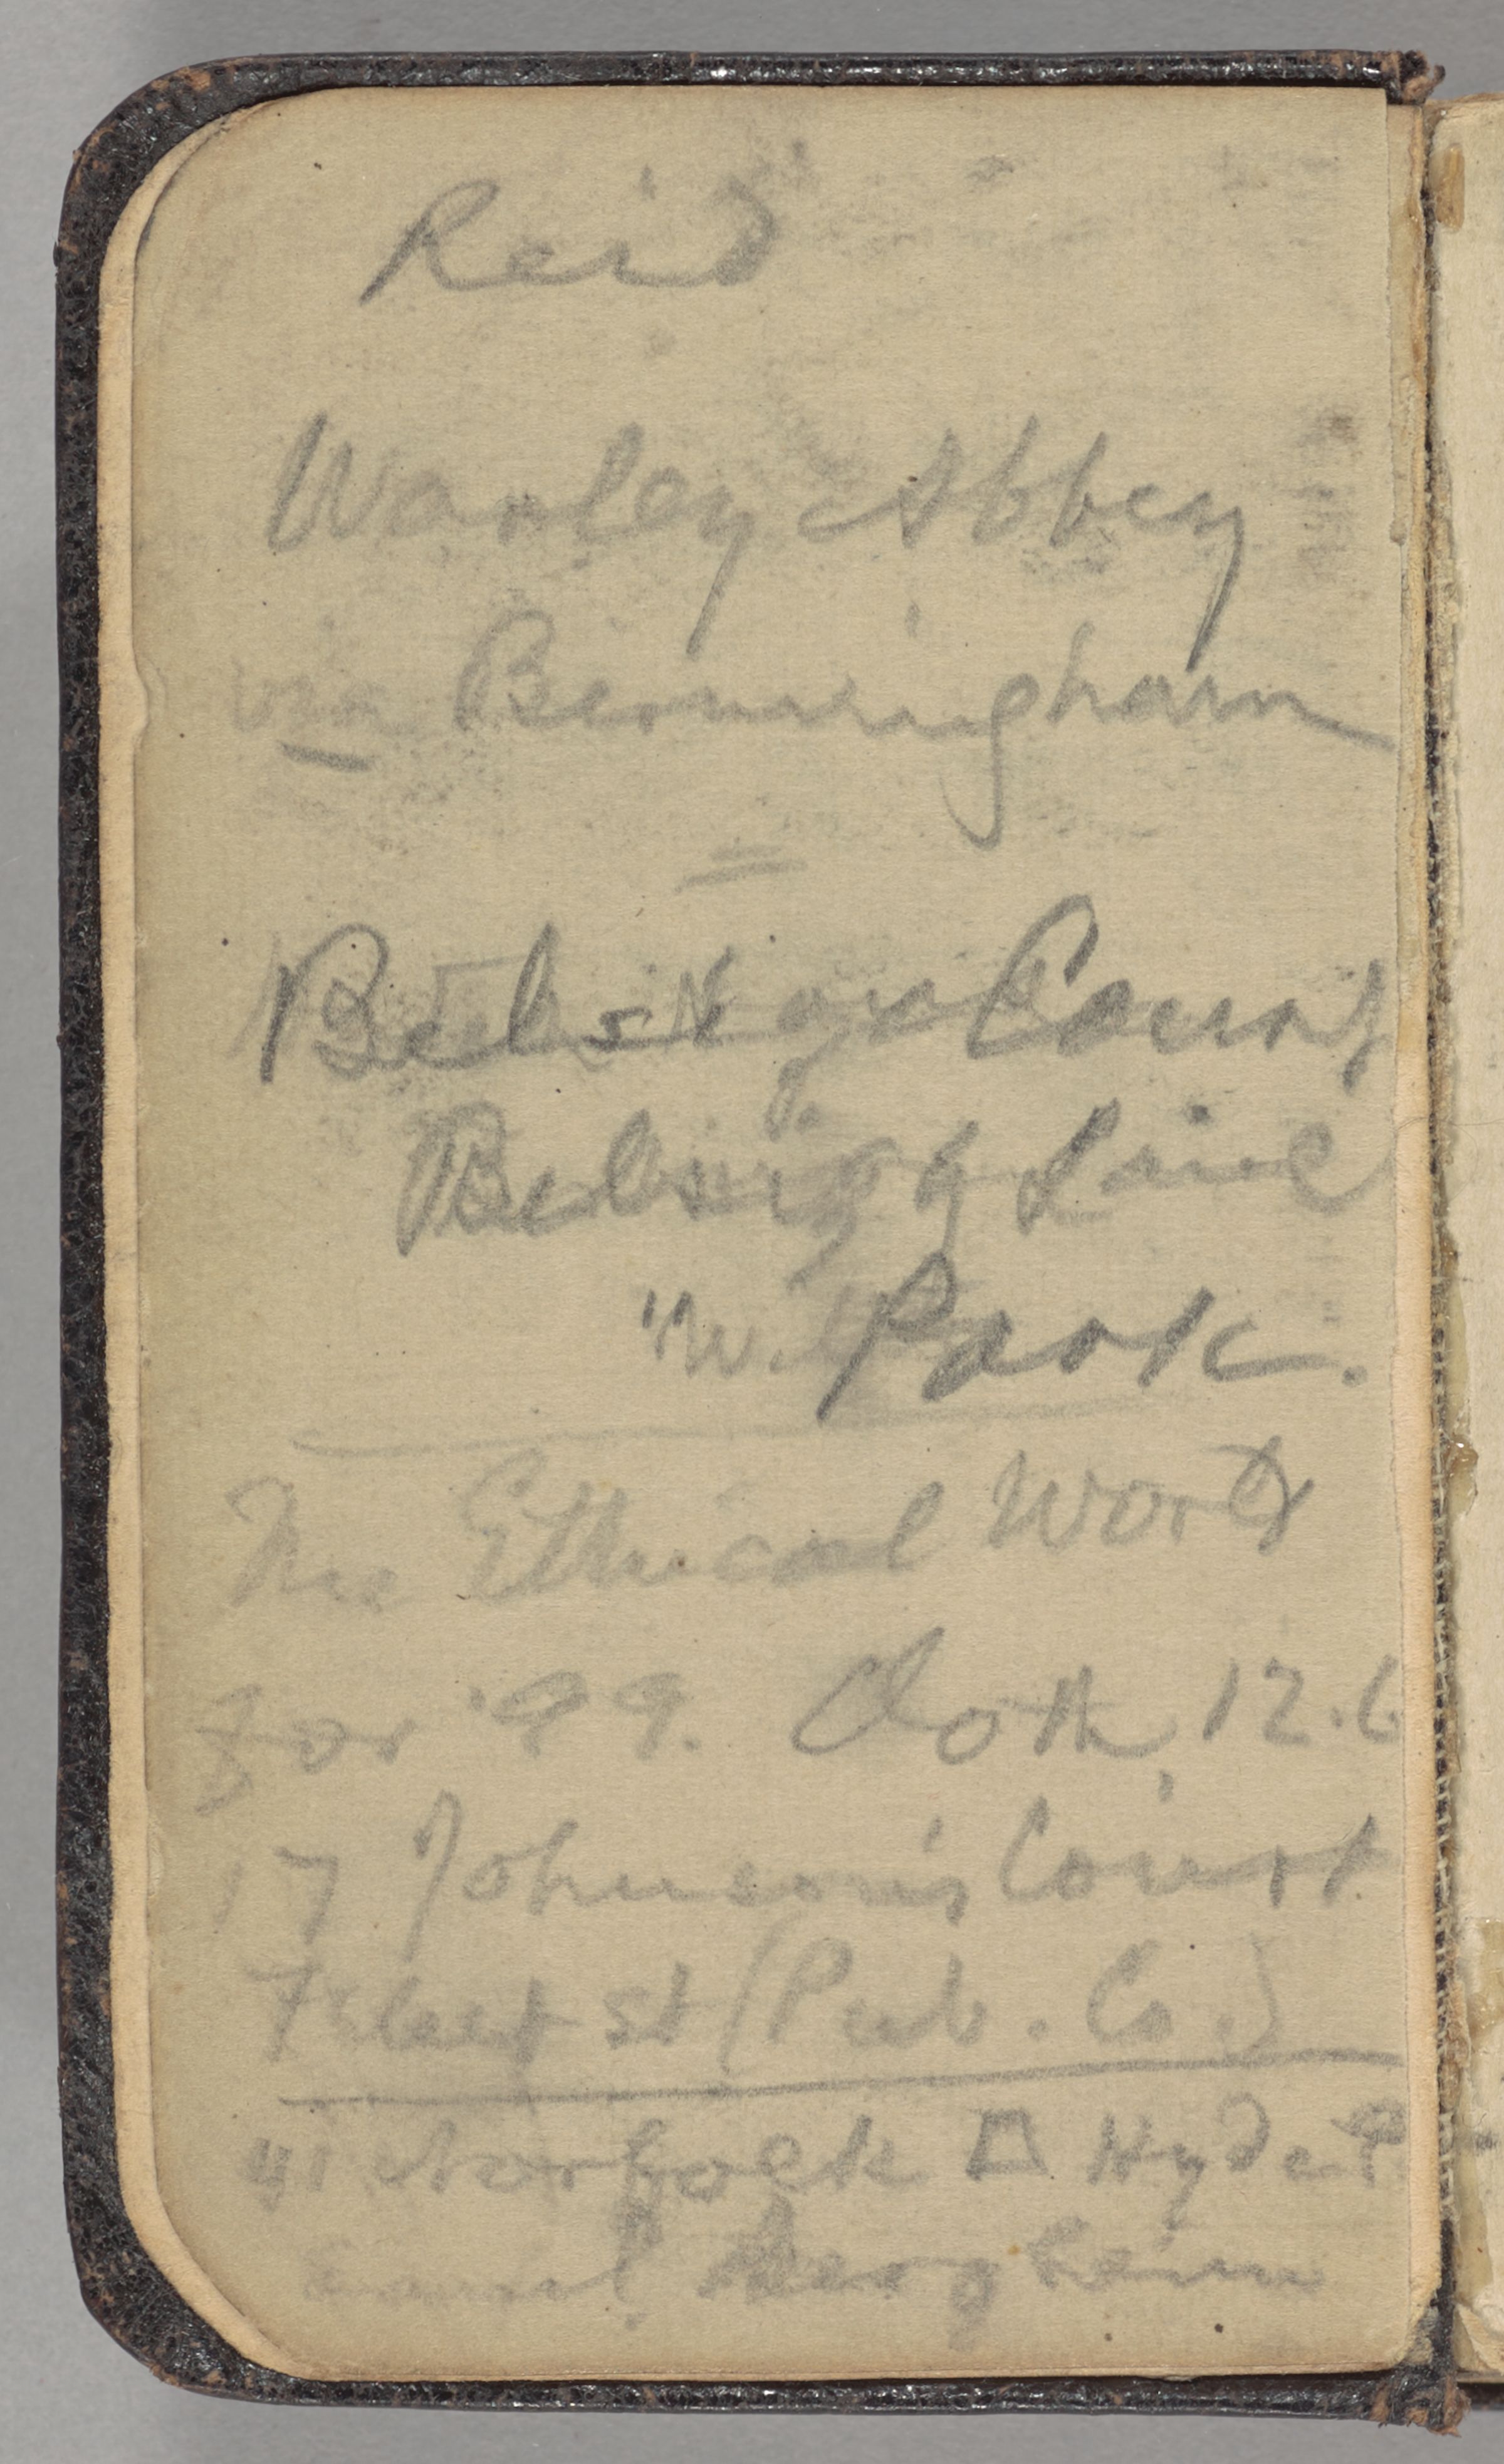 Reid
Warley Abbey
via Birmingham
=
Belsize Court
Belsize Lane
Park.
The Ethical World
for '99. Cloth 12.6
17 Johnson's Court
Fleet St (Pub. Co.)
41 Norfolk □ Hyde P
Bergheim